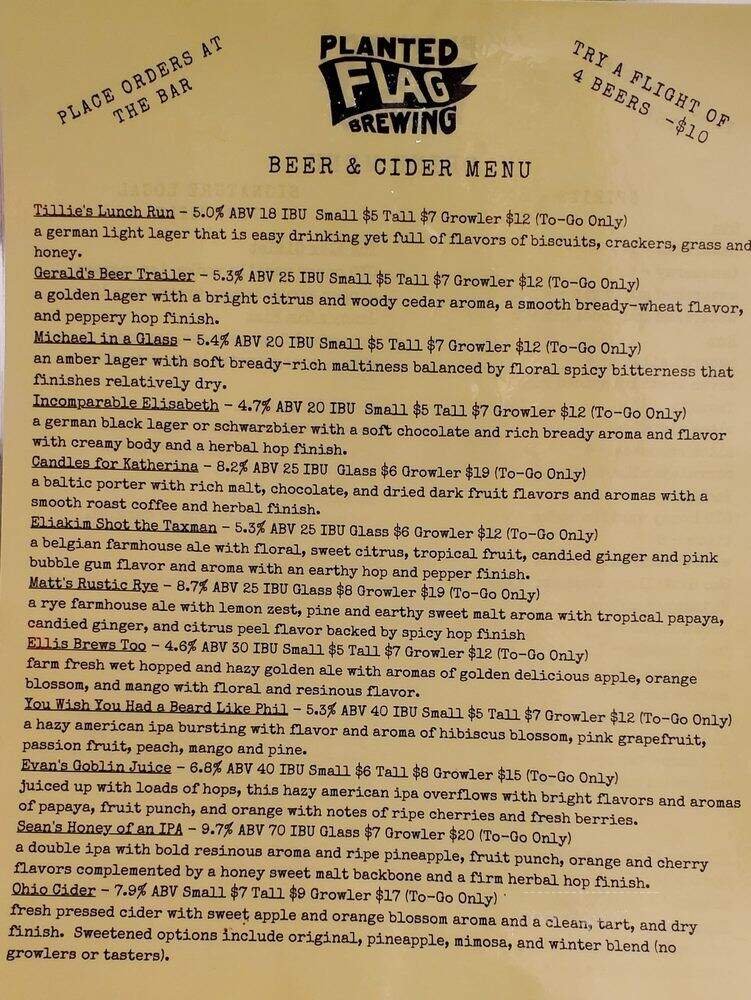 PLACE ORDERS AT
THE BAR
PLANTED
FLAG
BREWING
TRY A FLIGHT OF
4 BEERS -$10
BEER & CIDER MENU
Tillie's Lunch Run - 5.0% ABV 18 IBU Small $5 Tall $7 Growler $12 (To-Go Only)
a german light lager that is easy drinking yet full of flavors of biscuits, crackers, grass and
honey.
Gerald's Beer Trailer - 5.3% ABV 25 IBU Small $5 Tall $7 Growler $12 (To-Go Only)
a golden lager with a bright citrus and woody cedar aroma, a smooth bready-wheat flavor,
and peppery hop finish.
Michael in a Glass - 5.4% ABV 20 IBU Small $5 Tall $7 Growler $12 (To-Go Only)
an amber lager with soft bready-rich maltiness balanced by floral spicy bitterness that
finishes relatively dry.
Incomparable Elisabeth - 4.7% ABV 20 IBU Small $5 Tall $7 Growler $12 (To-Go Only)
a german black lager or schwarzbier with a soft chocolate and rich bready aroma and flavor
with creamy body and a herbal hop finish.
Candles for Katherina - 8.2% ABV 25 IBU Glass $6 Growler $19 (To-Go Only)
a baltic porter with rich malt, chocolate, and dried dark fruit flavors and aromas with a
smooth roast coffee and herbal finish.
Eliakim Shot the Taxman - 5.3% ABV 25 IBU Glass $6 Growler $12 (To-Go Only)
a belgian farmhouse ale with floral, sweet citrus, tropical fruit, candied ginger and pink
bubble gum flavor and aroma with an earthy hop and pepper finish.
Matt's Rustic Rye - 8.7% ABV 25 IBU Glass $8 Growler $19 (To-Go Only)
a rye farmhouse ale with lemon zest, pine and earthy sweet malt aroma with tropical papaya,
candied ginger, and citrus peel flavor backed by spicy hop finish
Ellis Brews Too - 4.6% ABV 30 IBU Small $5 Tall $7 Growler $12 (To-Go Only)
farm fresh wet hopped and hazy golden ale with aromas of golden delicious apple, orange
blossom, and mango with floral and resinous flavor.
You Wish You Had a Beard Like Phil - 5.3% ABV 40 IBU Small $5 Tall $7 Growler $12 (To-Go Only)
a hazy american ipa bursting with flavor and aroma of hibiscus blossom, pink grapefruit,
passion fruit, peach, mango and pine.
Evan's Goblin Juice - 6.8% ABV 40 IBU Small $6 Tall $8 Growler $15 (To-Go Only)
juiced up with loads of hops, this hazy american ipa overflows with bright flavors and aromas
of papaya, fruit punch, and orange with notes of ripe cherries and fresh berries.
Sean's Honey of an IPA - 9.7% ABV 70 IBU Glass $7 Growler $20 (To-Go Only)
a double ipa with bold resinous aroma and ripe pineapple, fruit punch, orange and cherry
flavors complemented by a honey sweet malt backbone and a firm herbal hop finish.
Ohio Cider - 7.9% ABV Small $7 Tall $9 Growler $17 (To-Go Only)
fresh pressed cider with sweet apple and orange blossom aroma and a clean, tart, and dry
finish. Sweetened options include original, pineapple, mimosa, and winter blend (no
growlers or tasters).